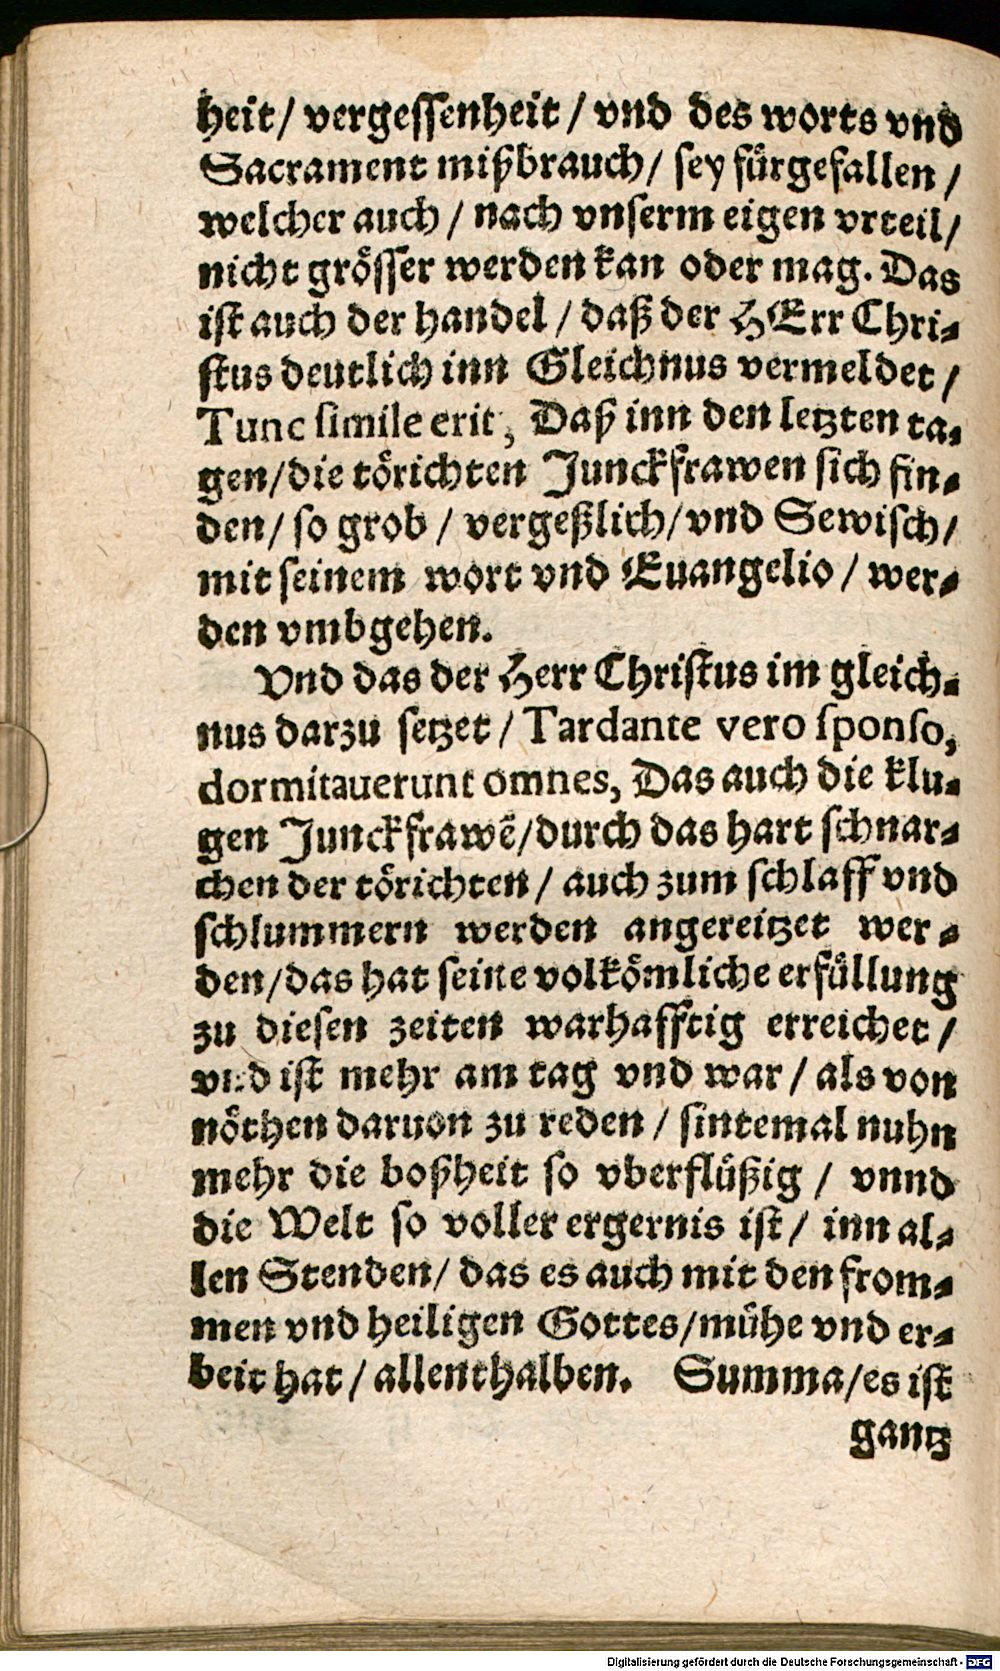 heit/ vergessenheit / vnd des worts vnd
Sacrament mißbrauch/ sey fürgefallen /
welcher auch / nach vnserm eigen vrteil/
nicht grösser werden kan oder mag. Das
ist auch der handel / daß der HErr Chri-
stus deutlich inn Gleichnus vermeldet /
Tunc simile erit, Daß inn den letzten ta-
gen/die törichten Junckfrawen sich fin-
den/ so grob / vergeßlich/vnd Sewisch/
mit seinem wort vnd Euangelio / wer-
den vmbgehen.
Vnd das der Herr Christus im gleich-
nus darzu setzet / Tardante vero sponso,
dormitauerunt omnes, Das auch die klu-
gen Junckfrawē/durch das hart schnar-
chen der törichten / auch zum schlaff vnd
schlummern werden angereitzet wer-
den/das hat seine volkömliche erfüllung
zu diesen zeiten warhafftig erreichet /
vnd ist mehr am tag vnd war / als von
nöthen daruon zu reden / sintemal nuhn
mehr die boßheit so vberflüßig / vnnd
die Welt so voller ergernis ist / inn al-
len Stenden/ das es auch mit den from-
men vnd heiligen Gottes/mühe vnd er-
beit hat / allenthalben. Summa/es ist
gantz
Digitalisierung gefördert durch die Deutsche Forschungsgemeinschaft - DFG